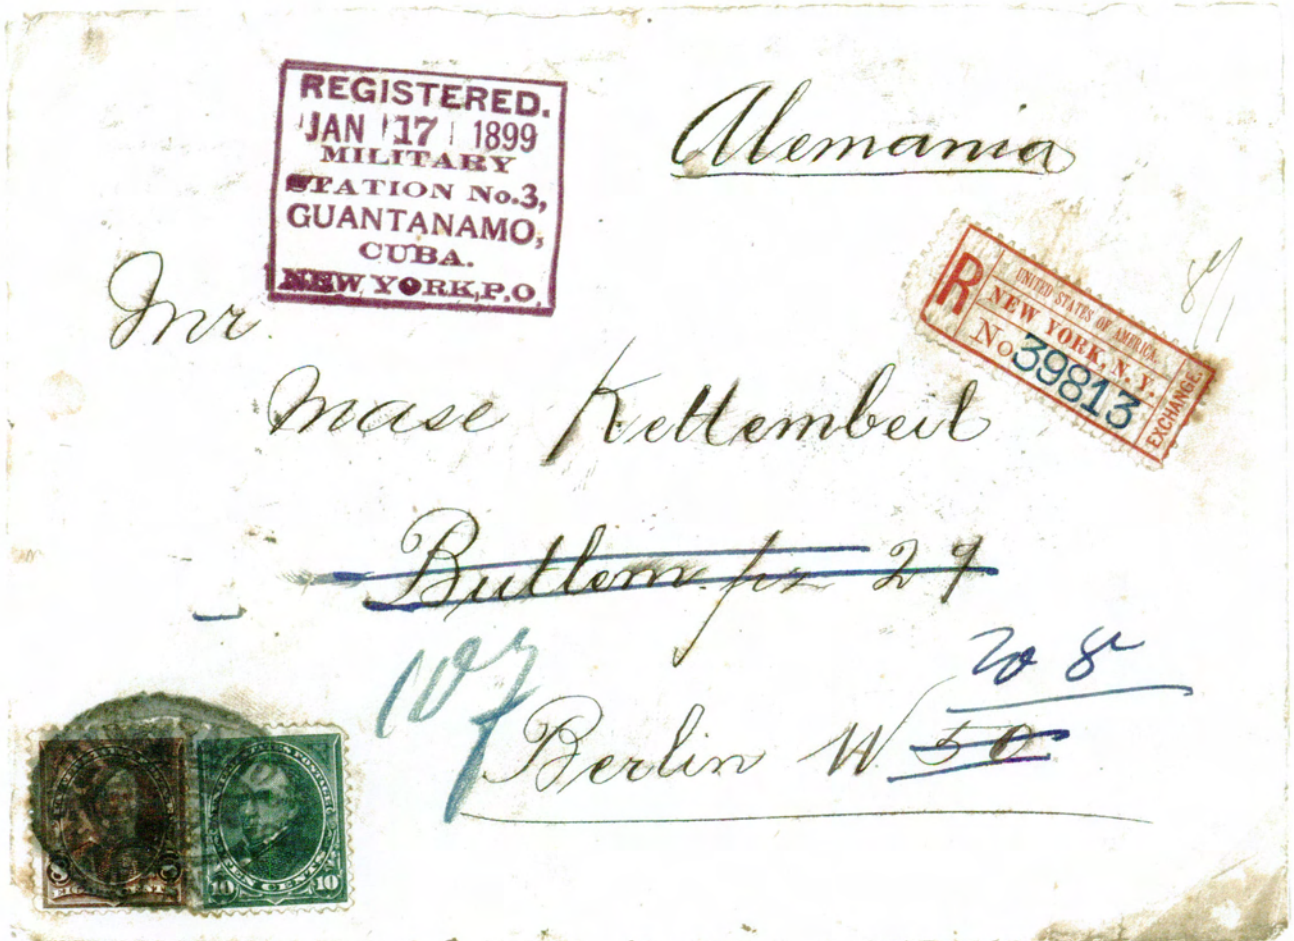 REGISTERED.
JAN 17 1899
MILITARY
STATION No.3,
GUANTANAMO,
CUBA.
NEW YORK, P.O.
Alemania
R
UNITED STATES OF AMERICA.
NEW YORK, N.Y.
No 39813
EXCHANGE.
Mr
Mase Kettembeil
29
107
Berlin W 50
8
10 TEN CENTS 10